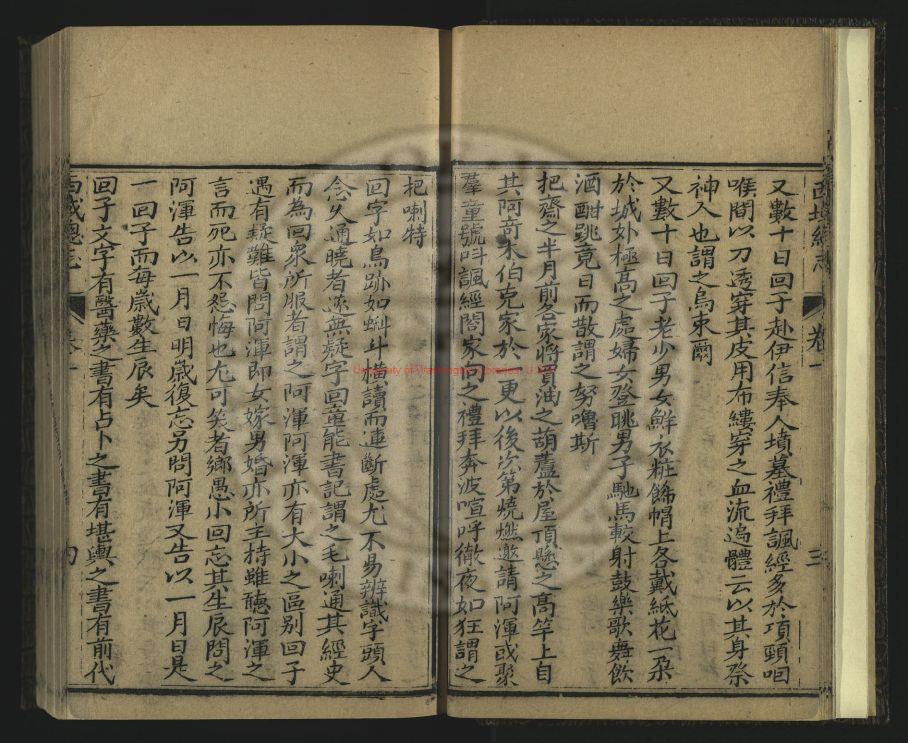 又數十日回子赴伊信奉人墳墓禮拜諷經多於項頸咽
喉間以刀透穿其皮用布縷穿之血流遍體云以其身祭
神人也謂之烏束爾
又數十日回子老少男女鮮衣粧餙帽上各戴紙花一朶
於城外極高之處婦女登眺男子馳馬較射鼓樂歌舞飲
酒酣跳竟日而散謂之努嚕斯
把齋之半月前各家將買油之葫蘆於屋頂懸之高竿上自
其阿竒木伯克家於一更以後次第燒燃邀請阿渾或聚
羣童號呌諷經閤家向之禮拜奔波喧呼徹夜如狂謂之
把喇特
回字如鳥跡如蝌斗橫讀而連斷處尤不易辨識字頭人
念久通曉者遂無疑字回童能書記謂之毛喇通其經史
而為回衆所服者謂之阿渾阿渾亦有大小之區别回子
遇有疑難皆問阿渾即女嫁男婚亦所主持雖聽阿渾之
言而死亦不怨悔也尤可笑者鄉愚小回忘其生辰問之
阿渾告以一月日明歲復忘另問阿渾又告以一月日是
一回子而每歲數生辰矣
回子文字有醫藥之書有占卜之書有堪輿之書有前代
University of Washington Libraries, U.S.A.